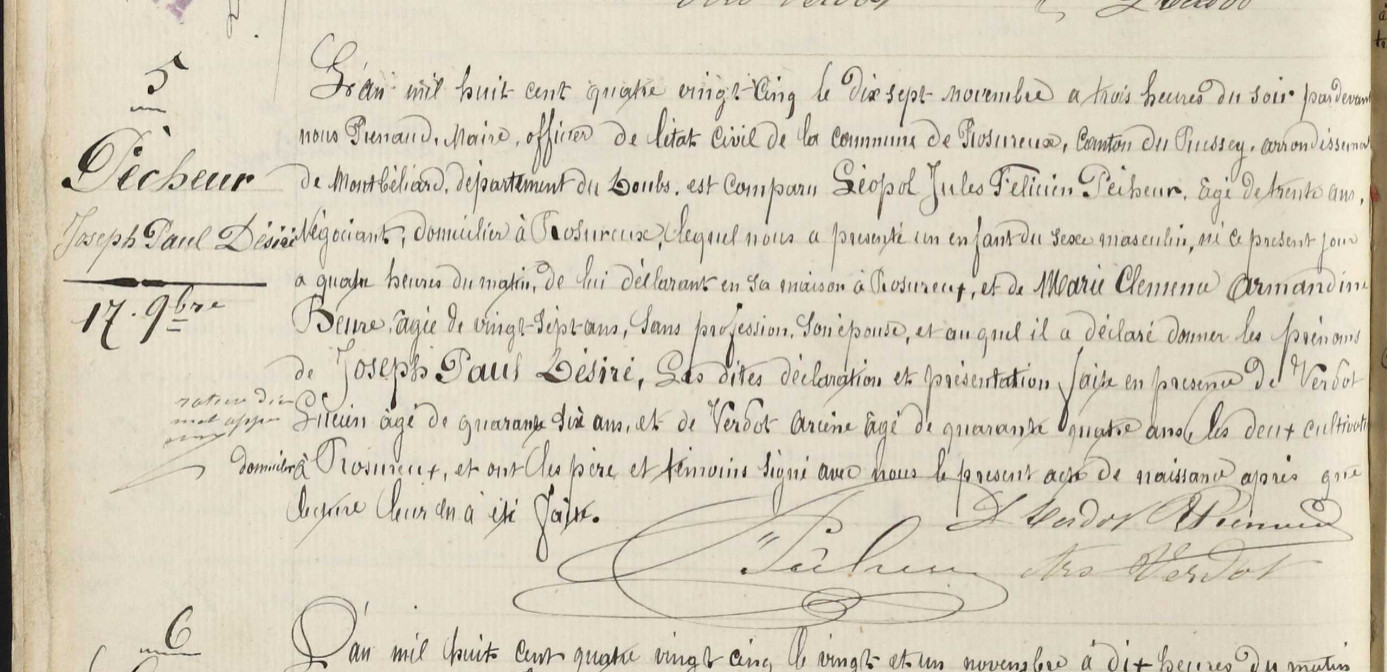 5
Pècheur
Joseph Paul Désiré
17. 9bre
L'an mil huit cent quatre vingt cinq le dix sept novembre a trois heures du soir pardevant
nous Renaud, Maire, officier de l'état civil de la commune de Rosureux, Canton du Russey, arrondissement
de Montbéliard, département du Doubs, est Comparu Léopol Jules Félicien Pècheur, âgé de trente ans,
Négociant, domicilier à Rosureux, lequel nous a presenté un enfant du sexe masculin, né ce present jour
a quatre heures du matin, de lui déclarant en sa maison à Rosureux, et de Marie Clemence Armandine
Beure, agée de vingt sept ans, sans profession, son épouse, et auquel il a déclaré donner les prénoms
de Joseph Paul Désiré, Les dites déclaration et présentation faite en presence de Verdot
Lucien âgé de quarante six ans, et de Verdot Arcène âgé de quarante quatre ans, les deux cultivateurs
domicilier à Rosureux, et ont les père et témoins signé avec nous le present acte de naissance après que
lecture leur en a été faite.
L Verdot
Pècheur Ars Verdot
6
L'an mil huit cent quatre vingt cinq le vingt et un novembre à dix heures du matin